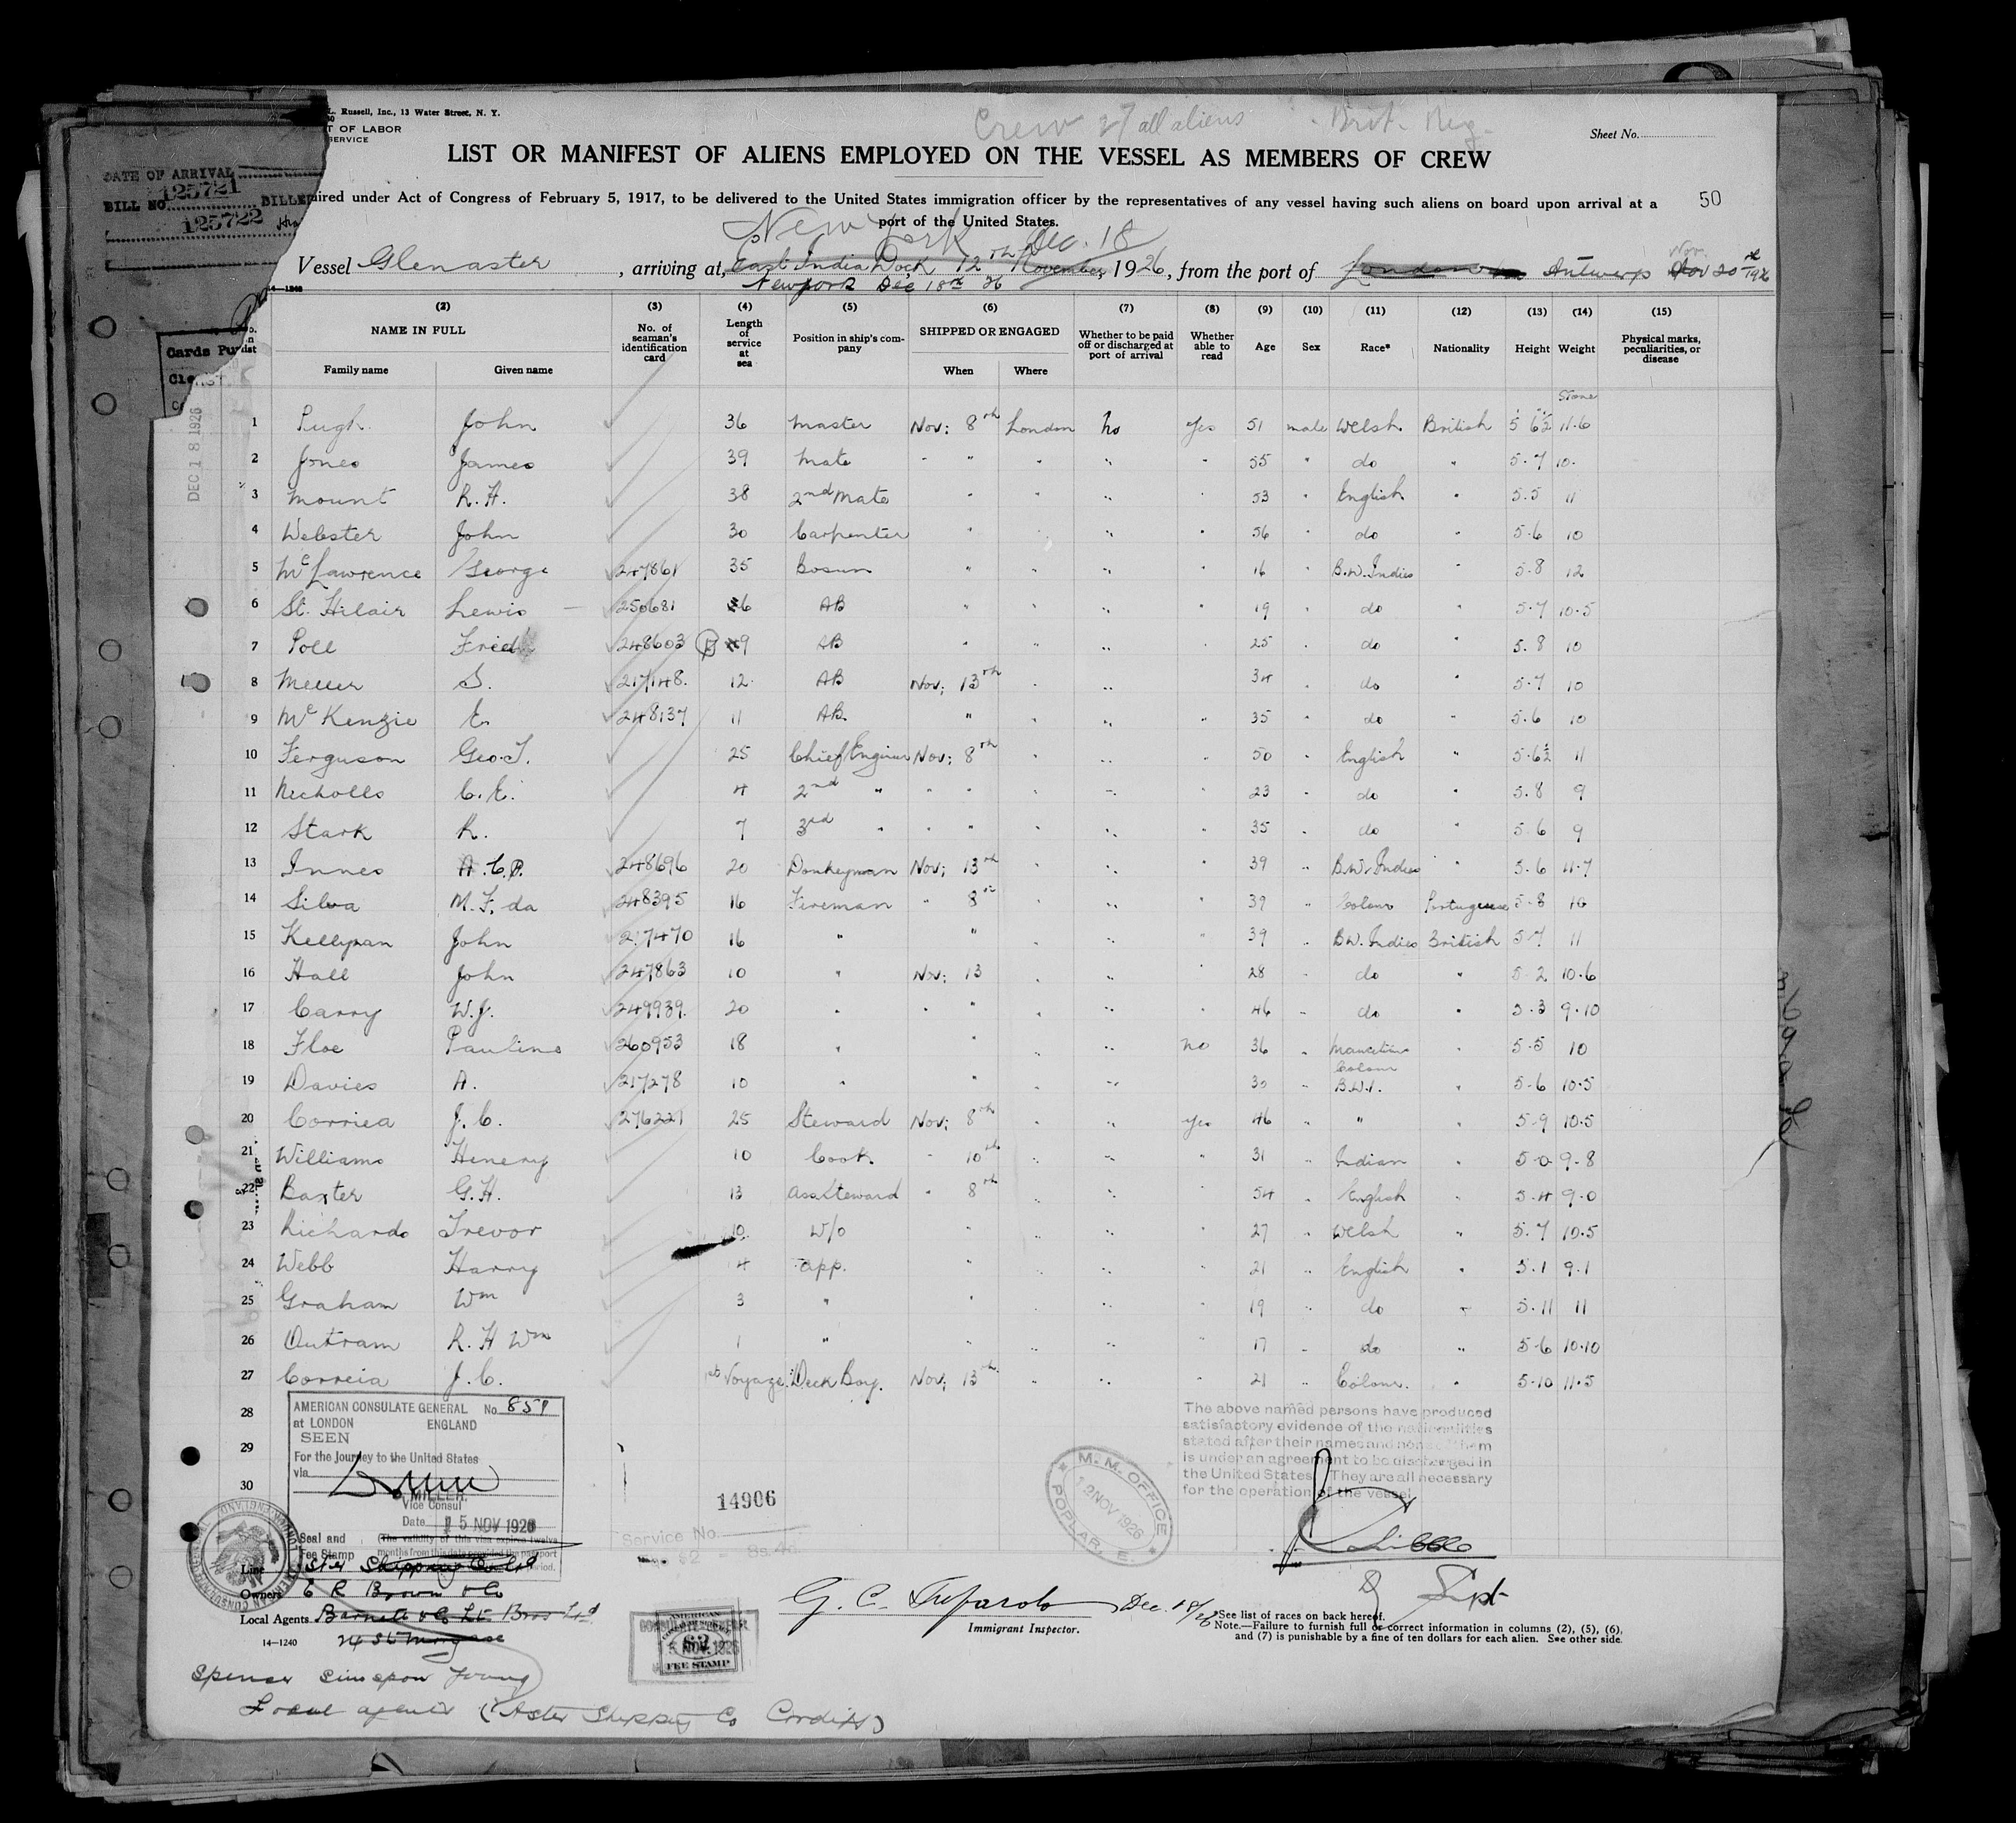 L. Russell, Inc., 13 Water Street, N. Y.
T OF LABOR
SERVICE
Crew 27 all aliens - Brit. Reg.
Sheet No.
LIST OR MANIFEST OF ALIENS EMPLOYED ON THE VESSEL AS MEMBERS OF CREW
DATE OF ARRIVAL
BILL NO. 125721 BILLE
125722
uired under Act of Congress of February 5, 1917, to be delivered to the United States immigration officer by the representatives of any vessel having such aliens on board upon arrival at a
50
port of the United States.
New York Dec. 18
Vessel Glenaster, arriving at, East India Dock 12th November, 1926, from the port of London Antwerp Nov 20 1926
New York Dec 18th 26
Cards Pu
DEC 18 1926
(2) (3) (4) (5) (6) (7) (8) (9) (10) (11) (12) (13) (14) (15)
NAME IN FULL No. of seaman's identification card Length of service at sea Position in ship's company SHIPPED OR ENGAGED Whether to be paid off or discharged at port of arrival Whether able to read Age Sex Race* Nationality Height Weight Physical marks, peculiarities, or disease
Family name Given name When Where
Stone
1 Pugh John 36 Master Nov: 8th London no Yes 51 male Welsh British 5 6½ 11-6
2 Jones James 39 Mate " " " " " 55 " do " 5-7 10
3 Mount R. H. 38 2nd Mate " " " " 53 " English " 5.5 11
4 Webster John 30 Carpenter " " " " 56 " do " 5-6 10
5 McLawrence George 247861 35 Bosun " " " " 16 " B.W.Indies " 5-8 12
6 St. Hilair Lewis 250681 6 AB " " " " 19 " do " 5-7 10-5
7 Poll Fried 248603 9 AB " " " " 25 " do " 5.8 10
8 Meller S. 217148 12 AB Nov; 13th " " 34 " do " 5-7 10
9 McKenzie E. 248137 11 AB " " " " 35 " do " 5.6 10
10 Ferguson Geo. T. 25 Chief Engineer Nov: 8th " " " 50 " English " 5-6½ 11
11 Nicholls C. E. 4 2nd " " " " " " 23 " do " 5.8 9
12 Stark R. 7 3rd " " " " " " 35 " do " 5-6 9
13 Innes A. C. P. 248696 20 Donkeyman Nov; 13th " " " 39 " B.W.Indies " 5-6 11-7
14 Silva M. F. da 248395 16 Fireman " 8th " " " 39 " Colour Portuguese 5-8 10
15 Kellyman John 217470 16 " " " " " 39 " B.W.Indies British 5-7 11
16 Hall John 247863 10 " Nov: 13 " " " 28 " do " 5-2 10-6
17 Carry W. J. 249939 20 " " " " " " 46 " do " 5-3 9-10
18 Floe Paulino 260953 18 " " " " no 36 " 5-5 10
Colour
19 Davies A. 217278 10 " " " " 30 " B.W.I. " 5-6 10-5
20 Corriea J. C. 276221 25 Steward Nov; 8th " " Yes 46 " " " 5-9 10.5
21 Williams Henery 10 Cook " 10th " " " 31 " Indian " 5-0 9-8
22 Baxter G. H. 13 Ass Steward " 8th " " " 54 " English " 5-4 9-0
23 Richards Trevor 10 W/o " " " " 27 " Welsh " 5-7 10-5
24 Webb Harry 4 app. " " " " 21 " English " 5-1 9-1
25 Graham Wm 3 " " " " " 19 " do " 5-11 11
26 Outram R. H Wm 1 " " " " " 17 " do " 5-6 10-10
27 Correia J. C. 1st Voyage Deck Boy. Nov; 13th " " " 21 " Colour. " 5-10 11-5
28
29
30
AMERICAN CONSULATE GENERAL No. 859
at LONDON ENGLAND
SEEN
For the Journey to the United States
via
MILLER.
Vice Consul
Date 15 NOV 1926
(The validity of this visa expires twelve
months from this date provided the passport
Seal and
Fee Stamp
Service No.
14906
M. M. OFFICE
12 NOV 1926
POPLAR, E.
The above named persons have produced
satisfactory evidence of the nationalities
stated after their names and none of them
is under an agreement to be discharged in
the United States. They are all necessary
for the operation of the vessel
Supt
Line Star Shipping Co Ltd
Owners E R Brown & Co
Local Agents Barnett & Co Lt Bros Ltd
14—1240
G. C. Dec. 18/26
Immigrant Inspector.
*See list of races on back hereof.
Note.—Failure to furnish full or correct information in columns (2), (5), (6),
and (7) is punishable by a fine of ten dollars for each alien. See other side.
AMERICAN
CONSULAR SERVICE
$2
15 NOV. 1926
FEE STAMP
Spence Simson Young
Local agents (Aster Shipping Co Cardiff)